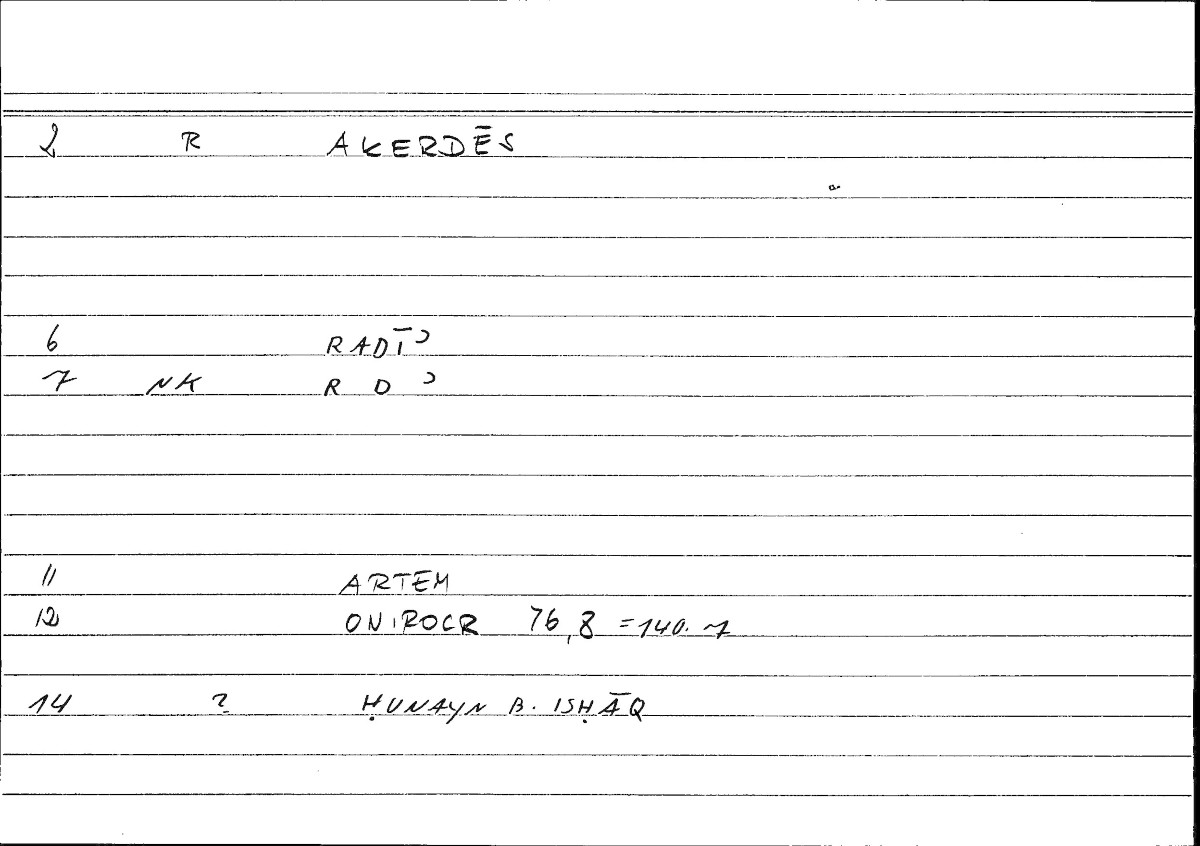 2 R AKERDĒS
6 RADĪʾ
7 NK R D ʾ
11 ARTEM
12 ONIROCR 76,8 = 140.7
14 ? ḤUNAYN B. ISḤĀQ